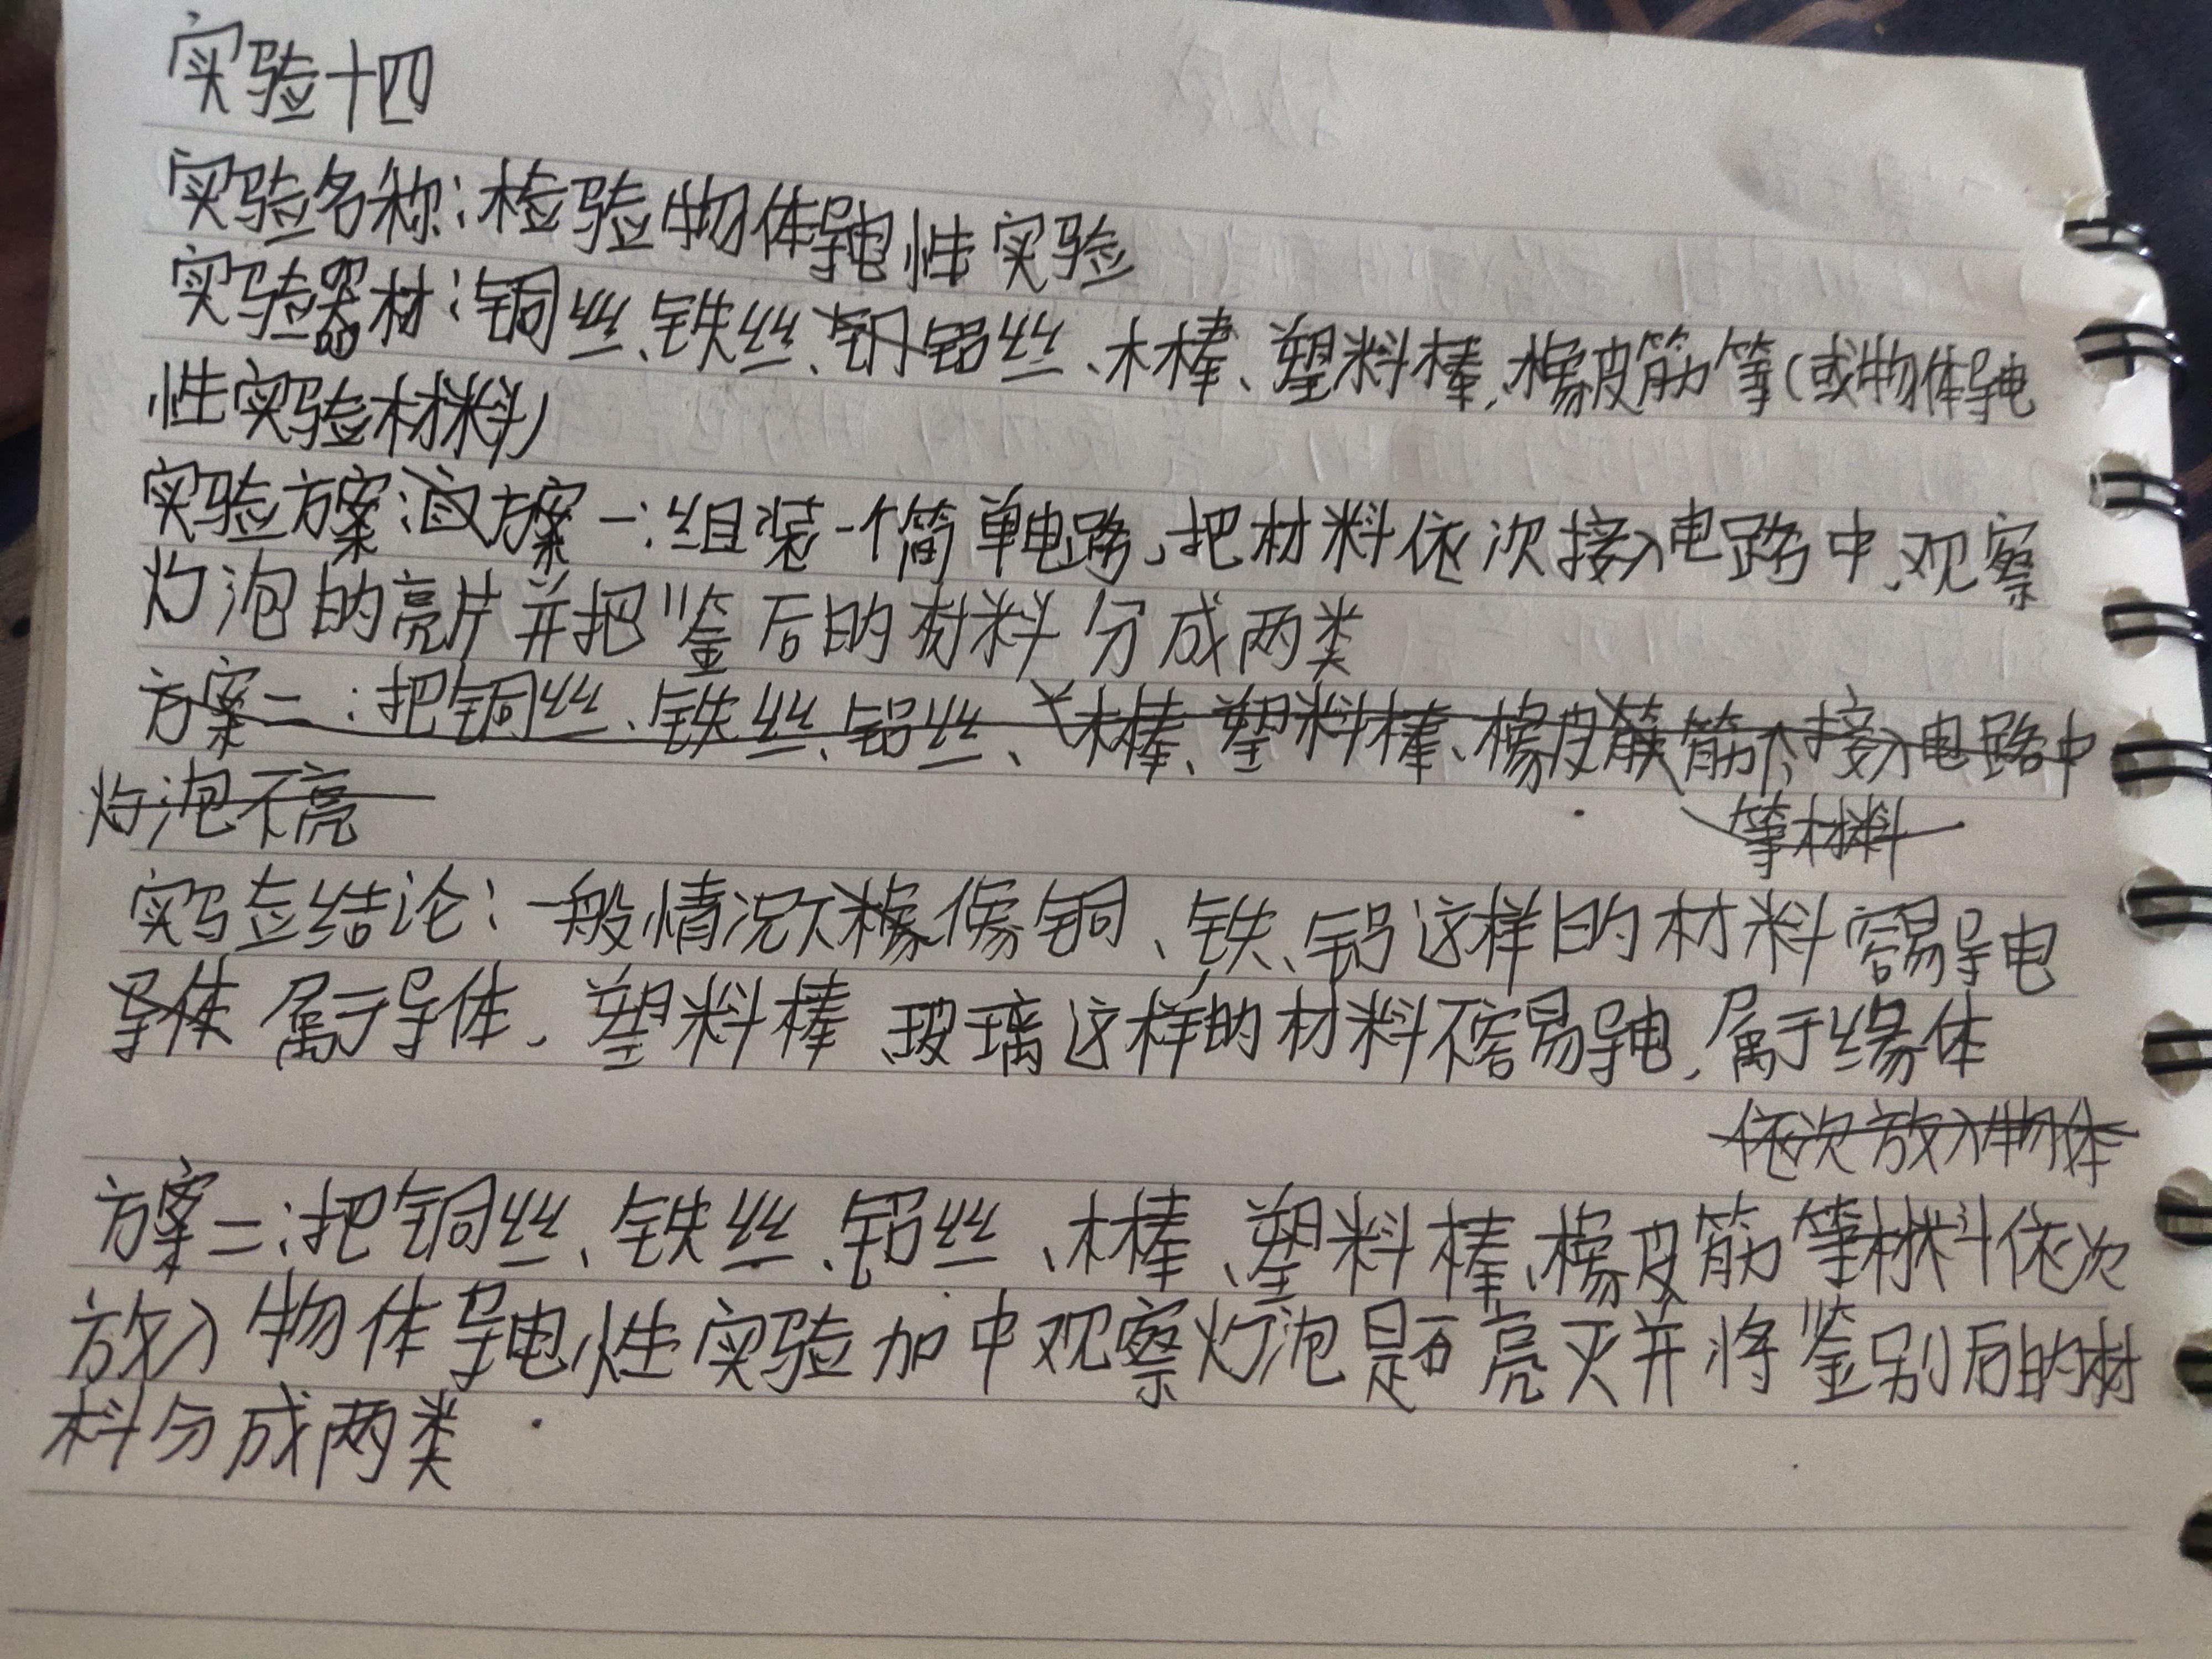 实验十四
实验名称:检验物体导电性实验
实验器材:铜丝、铁丝、铝丝、木棒、塑料棒、橡皮筋等(或物体导电
性实验材料)
实验方案:方案一:组装一个简单电路,把材料依次接入电路中,观察
灯泡的亮片并把鉴后的材料分成两类
方案二:把铜丝、铁丝、铝丝、木棒、塑料棒、橡皮筋接入电路中
等材料
灯泡不亮
实验结论:一般情况下像铜、铁、铝这样的材料容易导电
导体 属于导体,塑料棒、玻璃这样的材料不容易导电,属于缘体
依次放入物体
方案二:把铜丝、铁丝、铝丝、木棒、塑料棒、橡皮筋等材料依次
放入物体导电性实验加中观察灯泡是否亮灭并将鉴别后的材
料分成两类